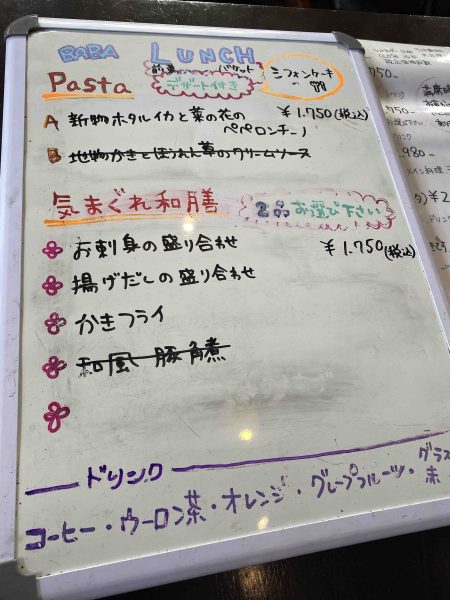 BABA LUNCH
Pasta バケット デザート付き シフォンケーキ
A 新物ホタルイカと菜の花の
ペペロンチーノ ¥1.750(税込)
B 地物かきとほうれん草のクリームソース
気まぐれ和膳 2品お選び下さい
お刺身の盛り合わせ ¥1.750(税込)
揚げだしの盛り合わせ
かきフライ
和風 豚角煮
ドリンク
コーヒー・ウーロン茶・オレンジ・グレープフルーツ・グラス
赤
750-
ドリンク
750-
980-
メイン料理